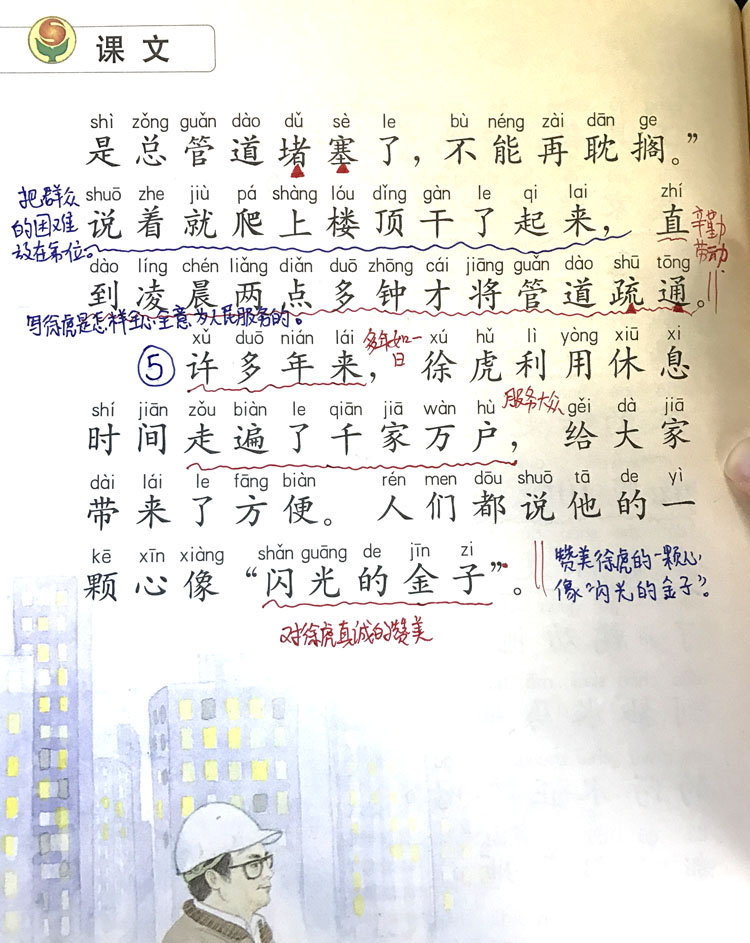 课文
shì zǒng guǎn dào dǔ sè le bù néng zài dān ge
是总管道堵塞了，不能再耽搁。”
把群众的困难放在第一位。
shuō zhe jiù pá shàng lóu dǐng gàn le qi lai zhí
说着就爬上楼顶干了起来，直
辛勤劳动
dào líng chén liǎng diǎn duō zhōng cái jiāng guǎn dào shū tōng
到凌晨两点多钟才将管道疏通。
写徐虎是怎样全心全意为人民服务的。
xǔ duō nián lái xú hǔ lì yòng xiū xi
⑤许多年来，徐虎利用休息
多年如一日
shí jiān zǒu biàn le qiān jiā wàn hù gěi dà jiā
时间走遍了千家万户，给大家
服务大众
dài lái le fāng biàn rén men dōu shuō tā de yì
带来了方便。人们都说他的一
kē xīn xiàng shǎn guāng de jīn zi
颗心像“闪光的金子”。
赞美徐虎的一颗心
像“闪光的金子”。
对徐虎真诚的赞美